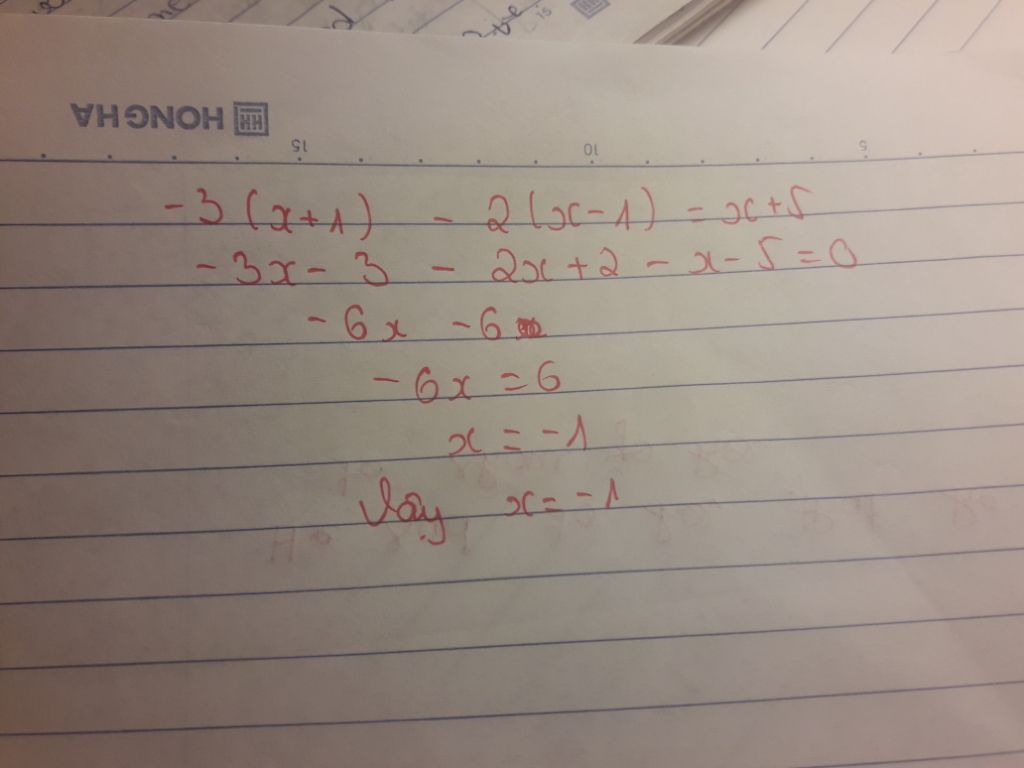 HONG HA
15 10 5
-3(x+1) - 2(x-1) = x+5
-3x - 3 - 2x + 2 - x - 5 = 0
-6x - 6
-6x = 6
x = -1
Vậy x = -1